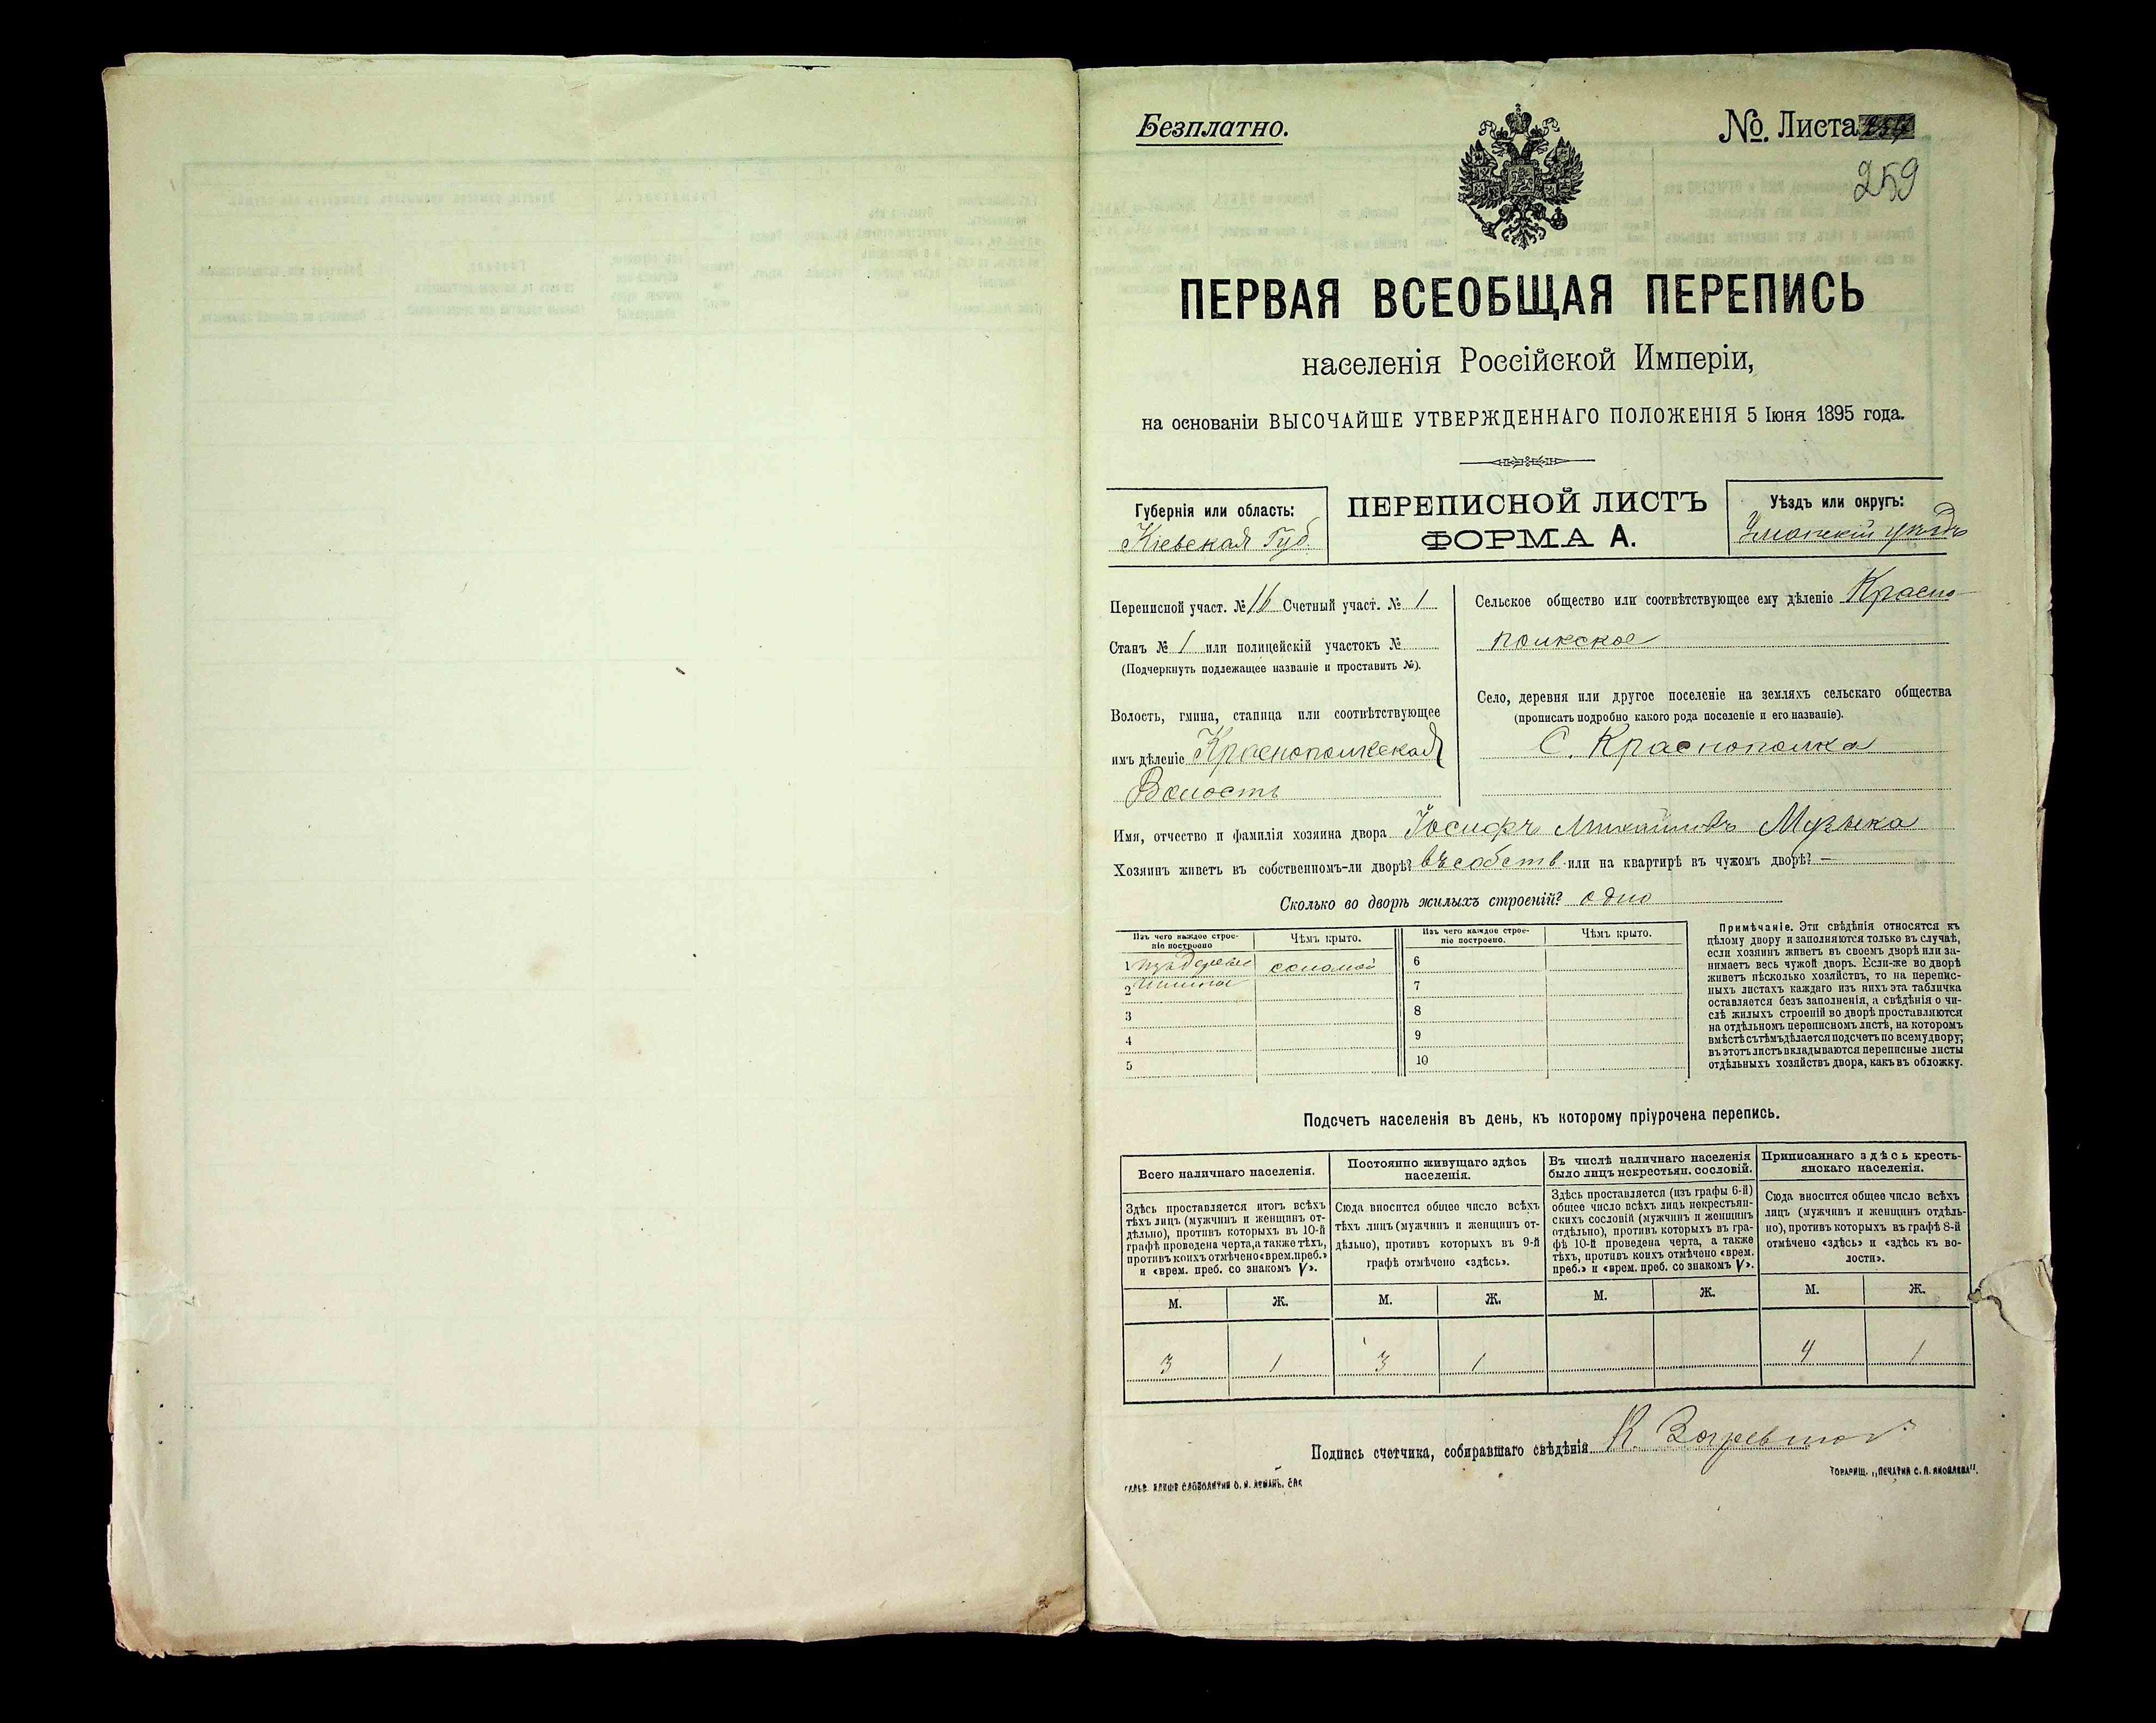 Безплатно.
№. Листа
259
ПЕРВАЯ ВСЕОБЩАЯ ПЕРЕПИСЬ
населенія Россійской Имперіи,
на основаніи ВЫСОЧАЙШЕ УТВЕРЖДЕННАГО ПОЛОЖЕНІЯ 5 Іюня 1895 года.
Губернія или область:
Кіевская Губ.
ПЕРЕПИСНОЙ ЛИСТЪ
ФОРМА А.
Уѣздъ или округъ:
Уманскій уѣздъ
Переписной участ. № 16 Счетный участ. № 1
Станъ № 1 или полицейскій участокъ №
(Подчеркнуть подлежащее названіе и проставить №).
Волость, гмина, станица или соотвѣтствующее
имъ дѣленіе Краснополкская
Волость
Сельское общество или соотвѣтствующее ему дѣленіе Красно
полкское
Село, деревня или другое поселеніе на земляхъ сельскаго общества
(прописать подробно какого рода поселеніе и его названіе).
С. Краснополка
Имя, отчество и фамилія хозяина двора Іосифъ Михайловъ Музыка
Хозяинъ живетъ въ собственномъ-ли дворѣ? въ собств. или на квартирѣ въ чужомъ дворѣ? —
Сколько во дворѣ жилыхъ строеній? одно
Изъ чего каждое строе-
ніе построено
Чѣмъ крыто.
Изъ чего каждое строе-
ніе построено.
Чѣмъ крыто.
1 соломой 6
2 7
3 8
4 9
5 10
Примѣчаніе. Эти свѣдѣнія относятся къ
цѣлому двору и заполняются только въ случаѣ,
если хозяинъ живетъ въ своемъ дворѣ или за-
нимаетъ весь чужой дворъ. Если-же во дворѣ
живетъ нѣсколько хозяйствъ, то на перепис-
ныхъ листахъ каждаго изъ нихъ эта табличка
оставляется безъ заполненія, а свѣдѣнія о чи-
слѣ жилыхъ строеній во дворѣ проставляются
на отдѣльномъ переписномъ листѣ, на которомъ
вмѣстѣ съ тѣмъ дѣлается подсчетъ по всему двору;
въ этотъ листъ вкладываются переписные листы
отдѣльныхъ хозяйствъ двора, какъ въ обложку.
Подсчетъ населенія въ день, къ которому пріурочена перепись.
Всего наличнаго населенія.
Здѣсь проставляется итогъ всѣхъ
тѣхъ лицъ (мужчинъ и женщинъ от-
дѣльно), противъ которыхъ въ 10-й
графѣ проведена черта, а также тѣхъ,
противъ коихъ отмѣчено «врем. преб.»
и «врем. преб. со знакомъ V».
Постоянно живущаго здѣсь
населенія.
Сюда вносится общее число всѣхъ
тѣхъ лицъ (мужчинъ и женщинъ от-
дѣльно), противъ которыхъ въ 9-й
графѣ отмѣчено «здѣсь».
Въ числѣ наличнаго населенія
было лицъ некрестьян. сословій.
Здѣсь проставляется (изъ графы 6-й)
общее число всѣхъ лицъ некрестьян-
скихъ сословій (мужчинъ и женщинъ
отдѣльно), противъ которыхъ въ гра-
фѣ 10-й проведена черта, а также
тѣхъ, противъ коихъ отмѣчено «врем.
преб.» и «врем. преб. со знакомъ V».
Приписаннаго здѣсь кресть-
янскаго населенія.
Сюда вносится общее число всѣхъ
лицъ (мужчинъ и женщинъ отдѣль-
но), противъ которыхъ въ графѣ 8-й
отмѣчено «здѣсь» и «здѣсь къ во-
лости».
М. Ж. М. Ж. М. Ж. М. Ж.
3 1 3 1 4 1
Подпись счетчика, собиравшаго свѣдѣнія К.
ТОВАРИЩ. „ПЕЧАТНЯ С. П. ЯКОВЛЕВА“.